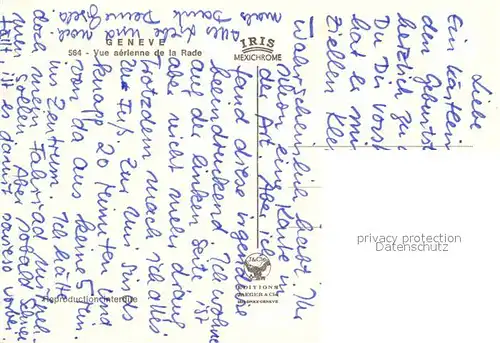 GENEVE
564 - Vue aérienne de la Rade
IRIS
MEXICHROME
Reproduction interdite
EDITIONS
JAEGER & Cie
privacy protection
Datenschutz
Liebe
Ein
den Geburtst
herzlich zu
Du Dir vorst
hat er mir
ziellen Kle
Wahrscheinlich habt Ihr
schon eine Karte in
der Art. Aber ich
fand diese irgendwie
beeindruckend. Ich wohne
auf der linken Seite, ist
aber nicht mehr drauf.
Trotzdem mach ich alles
zu Fuß. Zur Uni sind's
knapp 20 Minuten und
von da aus keine 5 Min.
ins Zentrum. Ich hätte
doch mein Fahrrad mit
sollen. Aber sobald Schnee
fällt ist es damit sowieso vorbei.
Alles Liebe und noch
mals Dank
Deine Gisela.